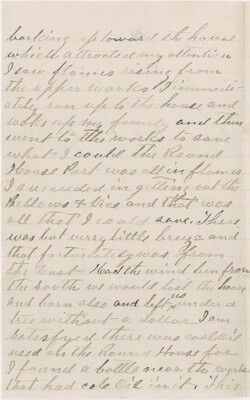 barking up toward the house
which attracted my attention
I saw flames rising from
the upper works I immedi-
ately run up to the house and
woke up my family and then
went to the works to save
what I could the Round
House Part was all in flames
I succeeded in getting out the
Bellows & vice and that was
all that I could save. There
was but verry little breze and
that fortunately was from
the East. Had the wind ben from
the south we would lost the house
and barn also and left us under a
tree without a dollar I am
satesfyed there was coal oil
used on the Round House for
I found a bottle near the works
that had cole Oil in it. This